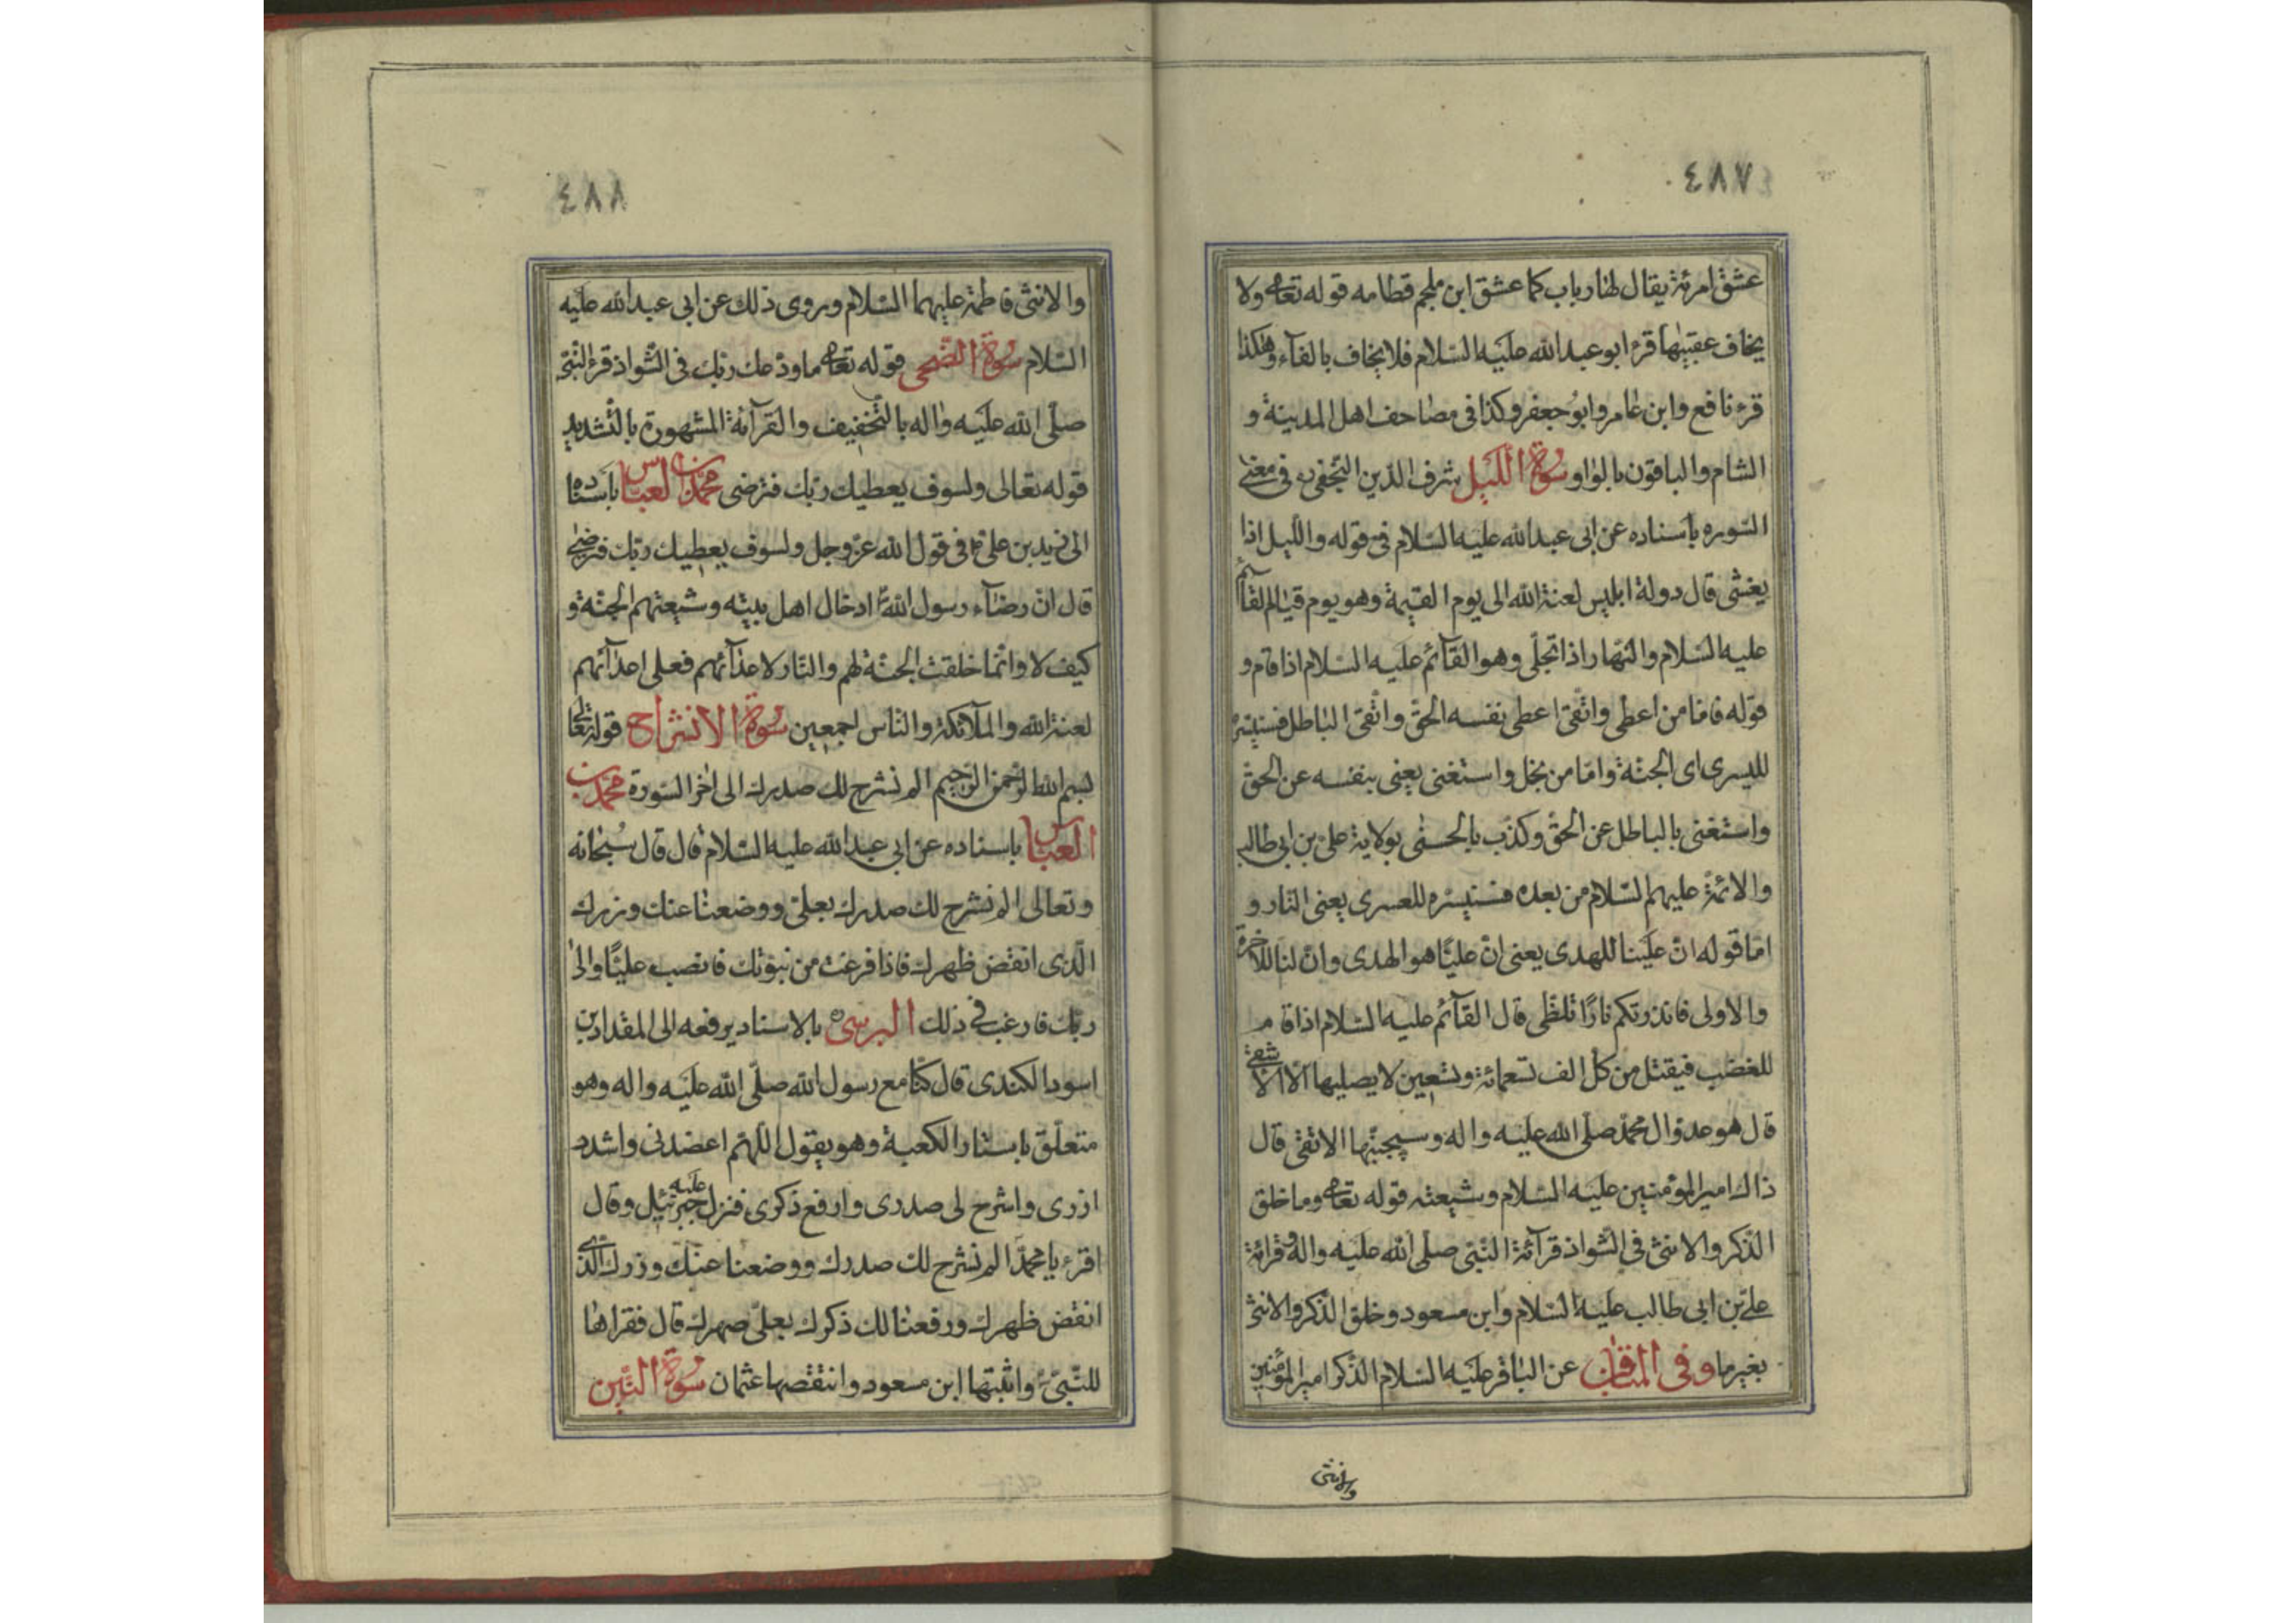 ٤٨٧
عشق امرئة يقال لها رباب كما عشق ابن ملجم قطامه قوله تعا ولا
يخاف عقبيها قرء ابو عبد الله عليه السلام فلا يخاف بالفآء وهكذا
قرء نافع وابن عامر وابو جعفر وكذا فى مصاحف اهل المدينة و
الشام والباقون بالواو سورة الليل شرف الدين النجفى ره فى معنى
السوره باسناده عن ابى عبد الله عليه السلام فى قوله والليل اذا
يغشى قال دولة ابليس لعنة الله الى يوم القيمة وهو يوم قيام القآئم
عليه السلام والنهار اذا تجلى وهو القآئم عليه السلام اذا قام و
قوله فاما من اعطى واتقى اعطى نفسه الحق واتقى الباطل فسنيسره
لليسرى اى الجنة واما من بخل واستغنى يعنى بنفسه عن الحق
واستغنى بالباطل عن الحق وكذب بالحسنى بولاية على بن ابى طالب
والائمة عليهم السلام من بعده فسنيسره للعسرى يعنى النار و
اما قوله ان علينا للهدى يعنى ان عليا هو الهدى وان لنا للاخرة
والاولى فانذرتكم نارا تلظى قال القآئم عليه السلام اذا قام
للغضب فيقتل من كل الف تسعمائة وتسعين لا يصليها الا الاشقى
قال هو عدو ال محمد صلى الله عليه واله وسيجنبها الاتقى قال
ذاك امير المؤمنين عليه السلام وشيعته قوله تعا وما خلق
الذكر والانثى فى الشواذ قرآئة النبى صلى الله عليه واله وقرائة
على بن ابى طالب عليه السلام وابن مسعود وخلق الذكر والانثى
بغير ما وفى المناقب عن الباقر عليه السلام الذكر امير المؤمنين
والانثى
٤٨٨
والانثى فاطمة عليهما السلام وروى ذلك عن ابى عبد الله عليه
السلام سورة الضحى قوله تعا ما ودعك ربك فى الشواذ قرء النبى
صلى الله عليه واله بالتخفيف والقرآئة المشهورة بالتشديد
قوله تعالى ولسوف يعطيك ربك فترضى محمد بن العباس باسناده
الى زيد بن على ع فى قول الله عز وجل ولسوف يعطيك ربك فترضى
قال ان رضآء رسول الله ادخال اهل بيته وشيعتهم الجنة و
كيف لا وانما خلقت الجنة لهم والنار لاعدآئهم فعلى اعدآئهم
لعنة الله والملآئكة والناس اجمعين سورة الانشراح قوله تعالى
بسم الله الرحمن الرحيم الم نشرح لك صدرك الى اخر السورة محمد بن
العباس باسناده عن ابى عبد الله عليه السلام قال قال سبحانه
وتعالى الم نشرح لك صدرك بعلى ووضعنا عنك وزرك
الذى انقض ظهرك فاذا فرغت من نبوتك فانصب عليا والى
ربك فارغب فى ذلك البرسى ره بالاسناد يرفعه الى المقداد بن
اسود الكندى قال كنا مع رسول الله صلى الله عليه واله وهو
متعلق باستار الكعبة وهو يقول اللهم اعضدنى واشدد
ازرى واشرح لى صدرى وارفع ذكرى فنزل عليه جبرئيل وقال
اقرء يا محمد الم نشرح لك صدرك ووضعنا عنك وزرك الذى
انقض ظهرك ورفعنا لك ذكرك بعلى صهرك قال فقراها
للنبى وانبتها ابن مسعود وانتقصها عثمان سورة التين